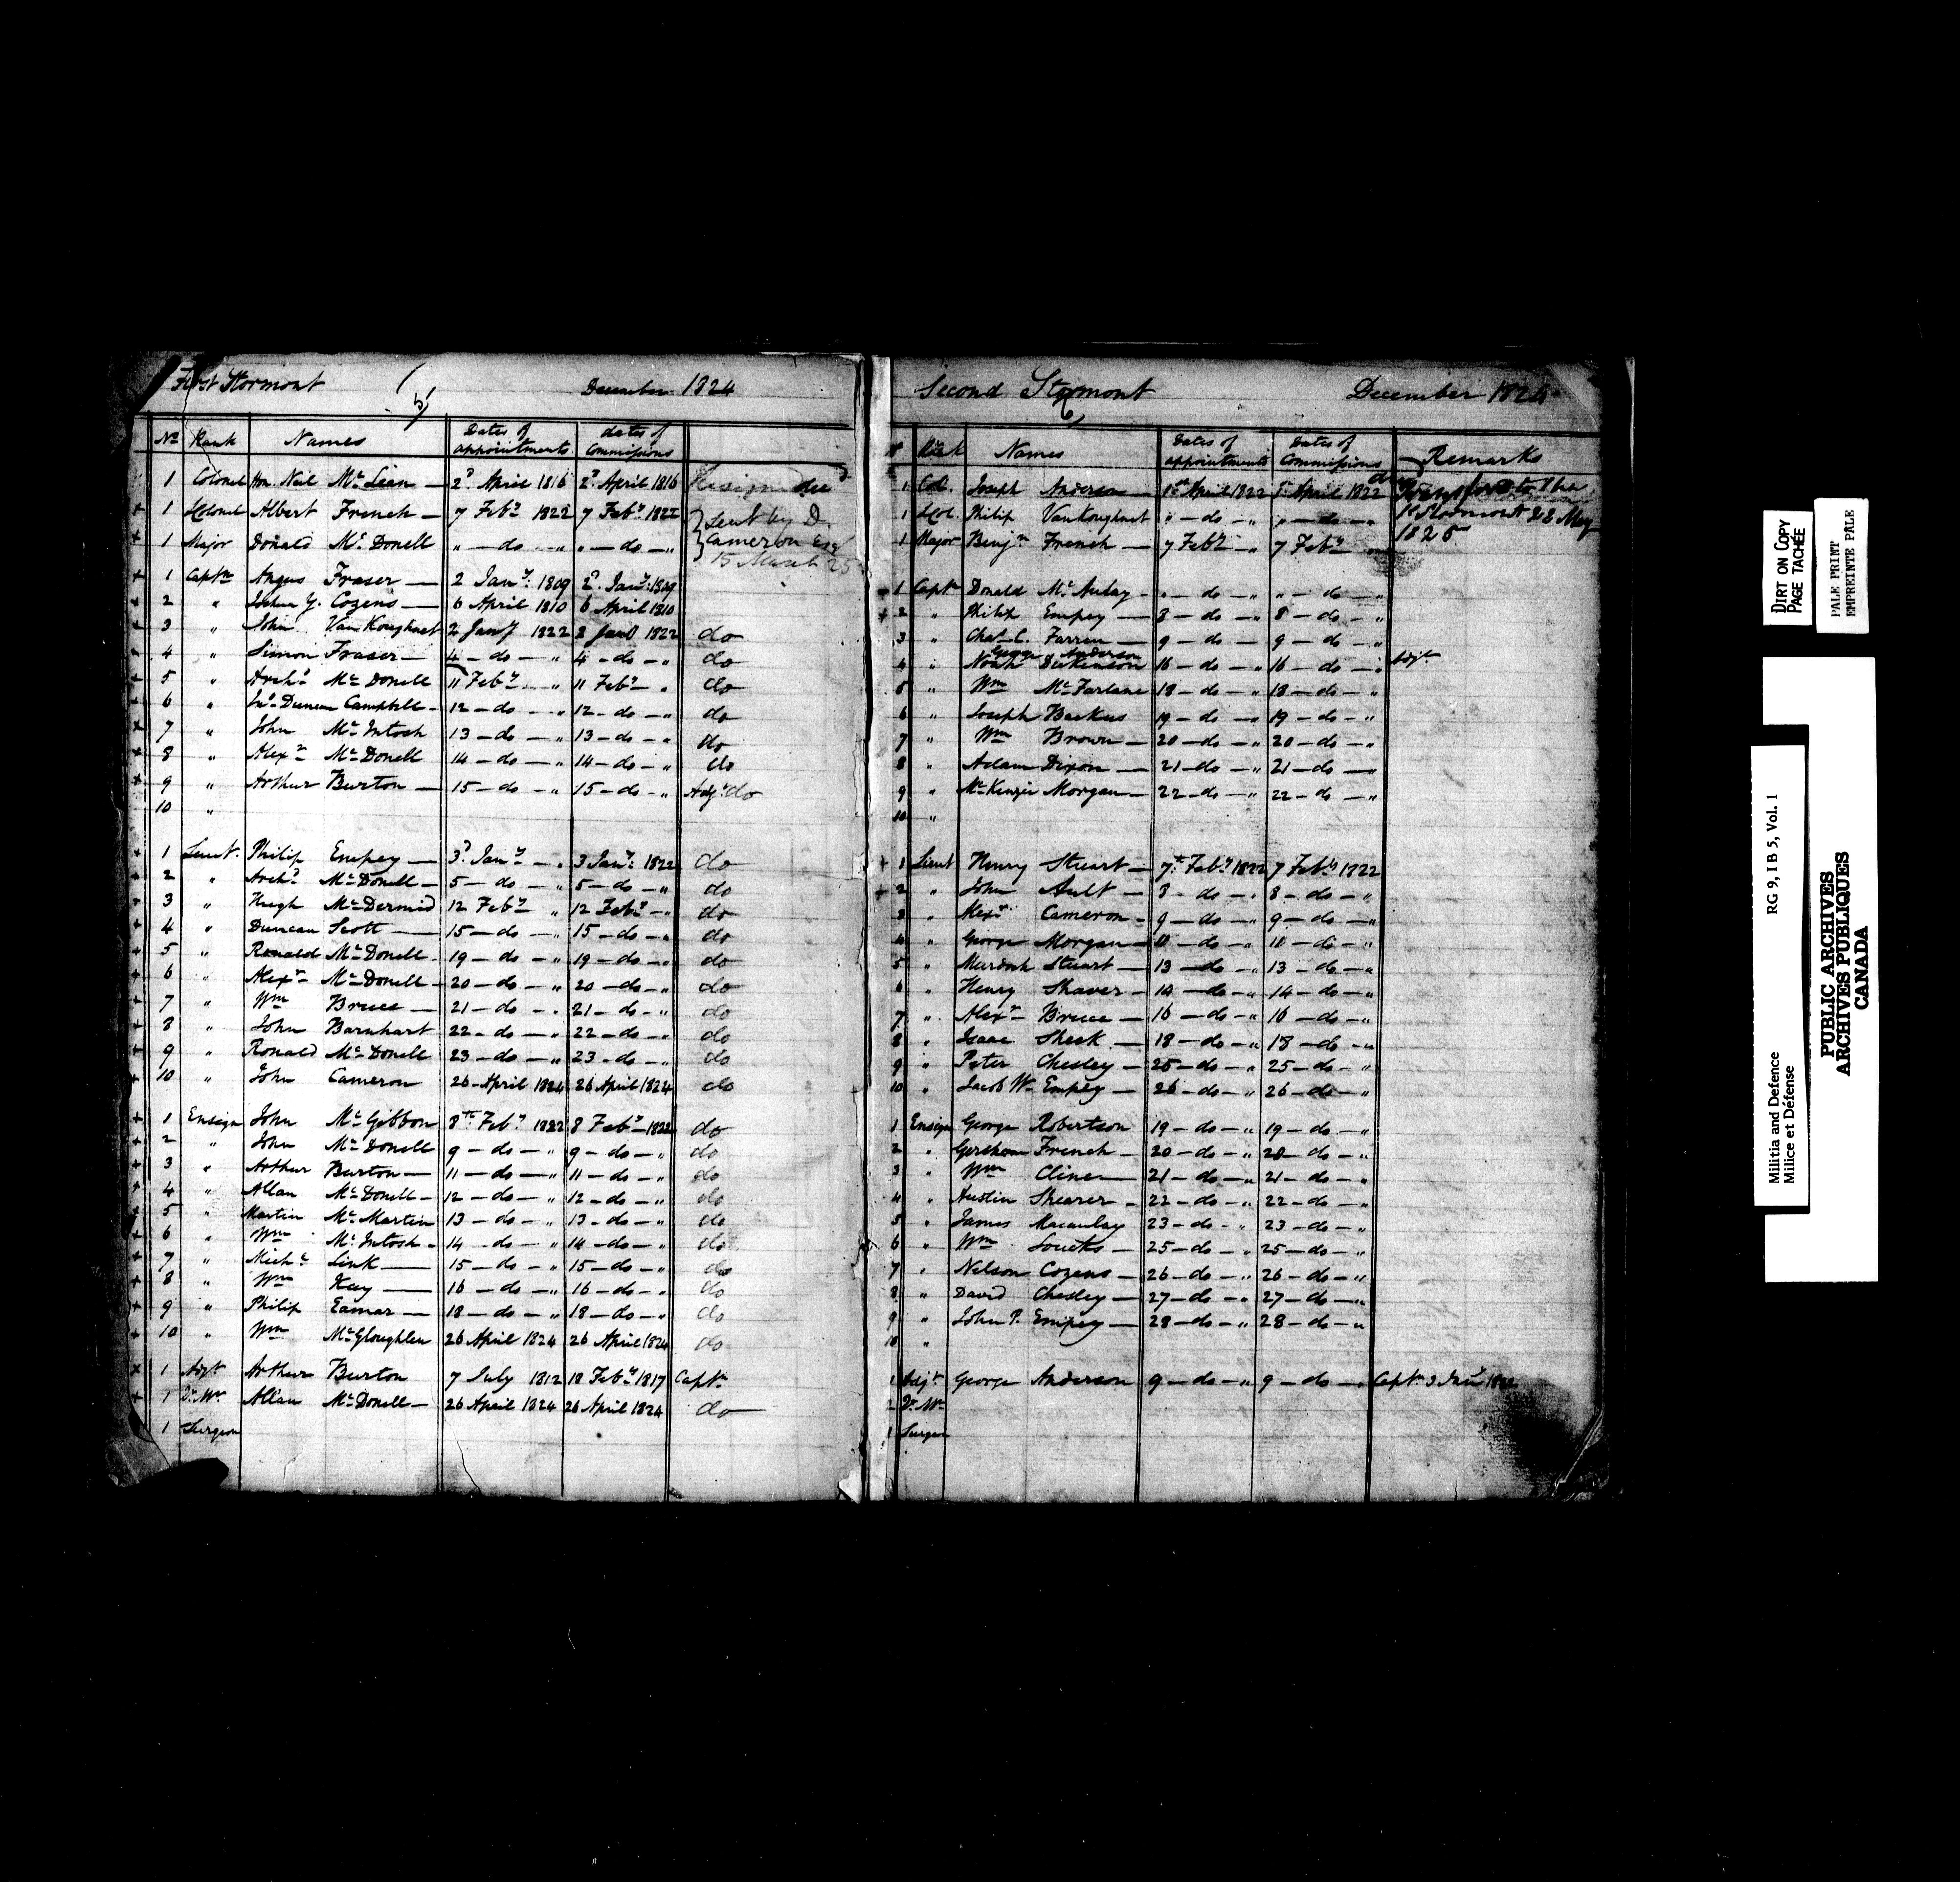 First Stormont 5/ December 1824
No Rank Names Dates of appointments dates of Commissions
1 Colonel Hon. Neil McLean — 2d April 1816 2d April 1816 Resigned
1 Lt Colonel Albert French — 7 Feby 1822 7 Feby 1822 } Sent by D.
1 Major Donald McDonell " — do — " " — do — " } Cameron Esqr
15 March 25
1 Captn Angus Fraser — 2 Jany 1809 2d Jany 1809
2 " Joshua Y. Cozens — 6 April 1810 6 April 1810
3 " John VanKoughnet 2 Jany 1822 2 Jany 1822 do
4 " Simon Fraser — 4 — do — " 4 — do — " do
5 " Archd McDonell 11 Feby — " 11 Feby — " do
6 " Jno Duncan Campbell — 12 — do — " 12 — do — " do
7 " John McIntosh 13 — do — " 13 — do — " do
8 " Alexr McDonell 14 — do — " 14 — do — " do
9 " Arthur Burton — 15 — do — " 15 — do — " Adjt do
10 "
1 Lieut. Philip Empey — 3d Jany — " 3 Jany 1822 do
2 " Archd McDonell — 5 — do — " 5 — do — " do
3 " Hugh McDermid 12 Feby " 12 Feby — " do
4 " Duncan Scott — 15 — do — " 15 — do — " do
5 " Ronald McDonell — 19 — do — " 19 — do — " do
6 " Alexr McDonell — 20 — do — " 20 — do — " do
7 " Wm Bruce — 21 — do — " 21 — do — " do
8 " John Barnhart 22 — do — " 22 — do — " do
9 " Ronald McDonell 23 — do — " 23 — do — " do
10 " John Cameron 26 April 1824 26 April 1824 do
1 Ensign John McGibbon 8th Feby 1822 8 Feby 1822 do
2 " John McDonell 9 — do — " 9 — do — " do
3 " Arthur Burton — 11 — do — " 11 — do — " do
4 " Allan McDonell — 12 — do — " 12 — do — " do
5 " Martin McMartin 13 — do — " 13 — do — " do
6 " Wm McIntosh — 14 — do — " 14 — do — " do
7 " Michl Link — 15 — do — " 15 — do — " do
8 " Wm Kay — 16 — do — " 16 — do — " do
9 " Philip Eamar — 18 — do — " 18 — do — " do
10 " Wm McGloughlen 26 April 1824 26 April 1824 do
1 Adjt Arthur Burton 7 July 1812 18 Feby 1817 Captn
1 Qr Mr Allan McDonell — 26 April 1824 26 April 1824 do
1 Surgeon
Second Stormont 6 December 1824
Rank Names Dates of appointments Dates of Commissions Remarks
1 Col. Joseph Anderson — 1st April 1822 1st April 1822 Transferred to the
1 Lt Col. Philip VanKoughnet " — do — " " — do — " 1st Stormont 28 May
1 Major Benjn French — 7 Feby — " 7 Feby " 1825
1 Captn Donald McAulay — " — do — " " — do — "
2 " Philip Empey — 8 — do — " 8 — do — "
3 " Chas C. Farren — 9 — do — " 9 — do — "
George Anderson
4 " Noah Dickinson 16 — do — " 16 — do — " Adjt
5 " Wm McFarlane 18 — do — " 18 — do — "
6 " Joseph Backus 19 — do — " 19 — do — "
7 " Wm Brown — 20 — do — " 20 — do — "
8 " Adam Dixon — 21 — do — " 21 — do — "
9 " McKenzie Morgan — 22 — do — " 22 — do — "
10 "
1 Lieut Henry Stuart — 7th Feby 1822 7 Feby 1822
2 " John Ault — 8 — do — " 8 — do — "
3 " Alexr Cameron — 9 — do — " 9 — do — "
4 " George Morgan — 10 — do — " 10 — do — "
5 " Murdoch Stuart — 13 — do — " 13 — do — "
6 " Henry Shaver — 14 — do — " 14 — do — "
7 " Alexr Bruce — 16 — do — " 16 — do — "
8 " Isaac Sheek — 18 — do — " 18 — do — "
9 " Peter Chesley — 25 — do — " 25 — do — "
10 " Jacob W. Empey — 26 — do — " 26 — do — "
1 Ensign George Robertson 19 — do — " 19 — do — "
2 " Gershom French — 20 — do — " 20 — do — "
3 " Wm Cline — 21 — do — " 21 — do — "
4 " Austin Shearer — 22 — do — " 22 — do — "
5 " James Macaulay 23 — do — " 23 — do — "
6 " Wm Loucks — 25 — do — " 25 — do — "
7 " Nelson Cozens — 26 — do — " 26 — do — "
8 " David Chesley — 27 — do — " 27 — do — "
9 " John P. Empey — 28 — do — " 28 — do — "
10 "
1 Adjt George Anderson 9 — do — " 9 — do — " Captn 3 Jany
2 Qr Mr
1 Surgeon
DIRT ON COPY
PAGE TACHÉE
PALE PRINT
EMPREINTE PALE
RG 9, I B 5, Vol. 1
Militia and Defence
Milice et Défense
PUBLIC ARCHIVES
ARCHIVES PUBLIQUES
CANADA